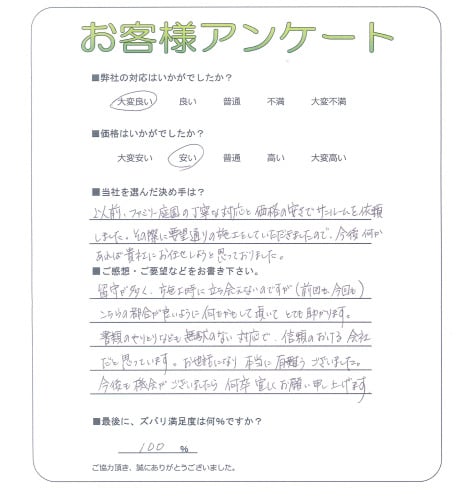 お客様アンケート
■弊社の対応はいかがでしたか？
大変良い 良い 普通 不満 大変不満
■価格はいかがでしたか？
大変安い 安い 普通 高い 大変高い
■当社を選んだ決め手は？
以前、ファミリー庭園の丁寧な対応と価格の安さでサンルームを依頼
しました。その際に要望通りの施工をしていただきましたので、今後何か
あれば貴社にお任せしようと思っておりました。
■ご感想・ご要望などをお書き下さい。
留守が多く、施工時に立ち会えないのですが（前回も今回も）
こちらの都合が良いように何もかもして頂いて とても助かります。
書類のやりとりなども無駄のない対応で、信頼のおける会社
だと思っています。お世話になり本当に有難うございました。
今後も機会がございましたら何卒宜しくお願い申し上げます
■最後に、ズバリ満足度は何%ですか？
100 %
ご協力頂き、誠にありがとうございました。